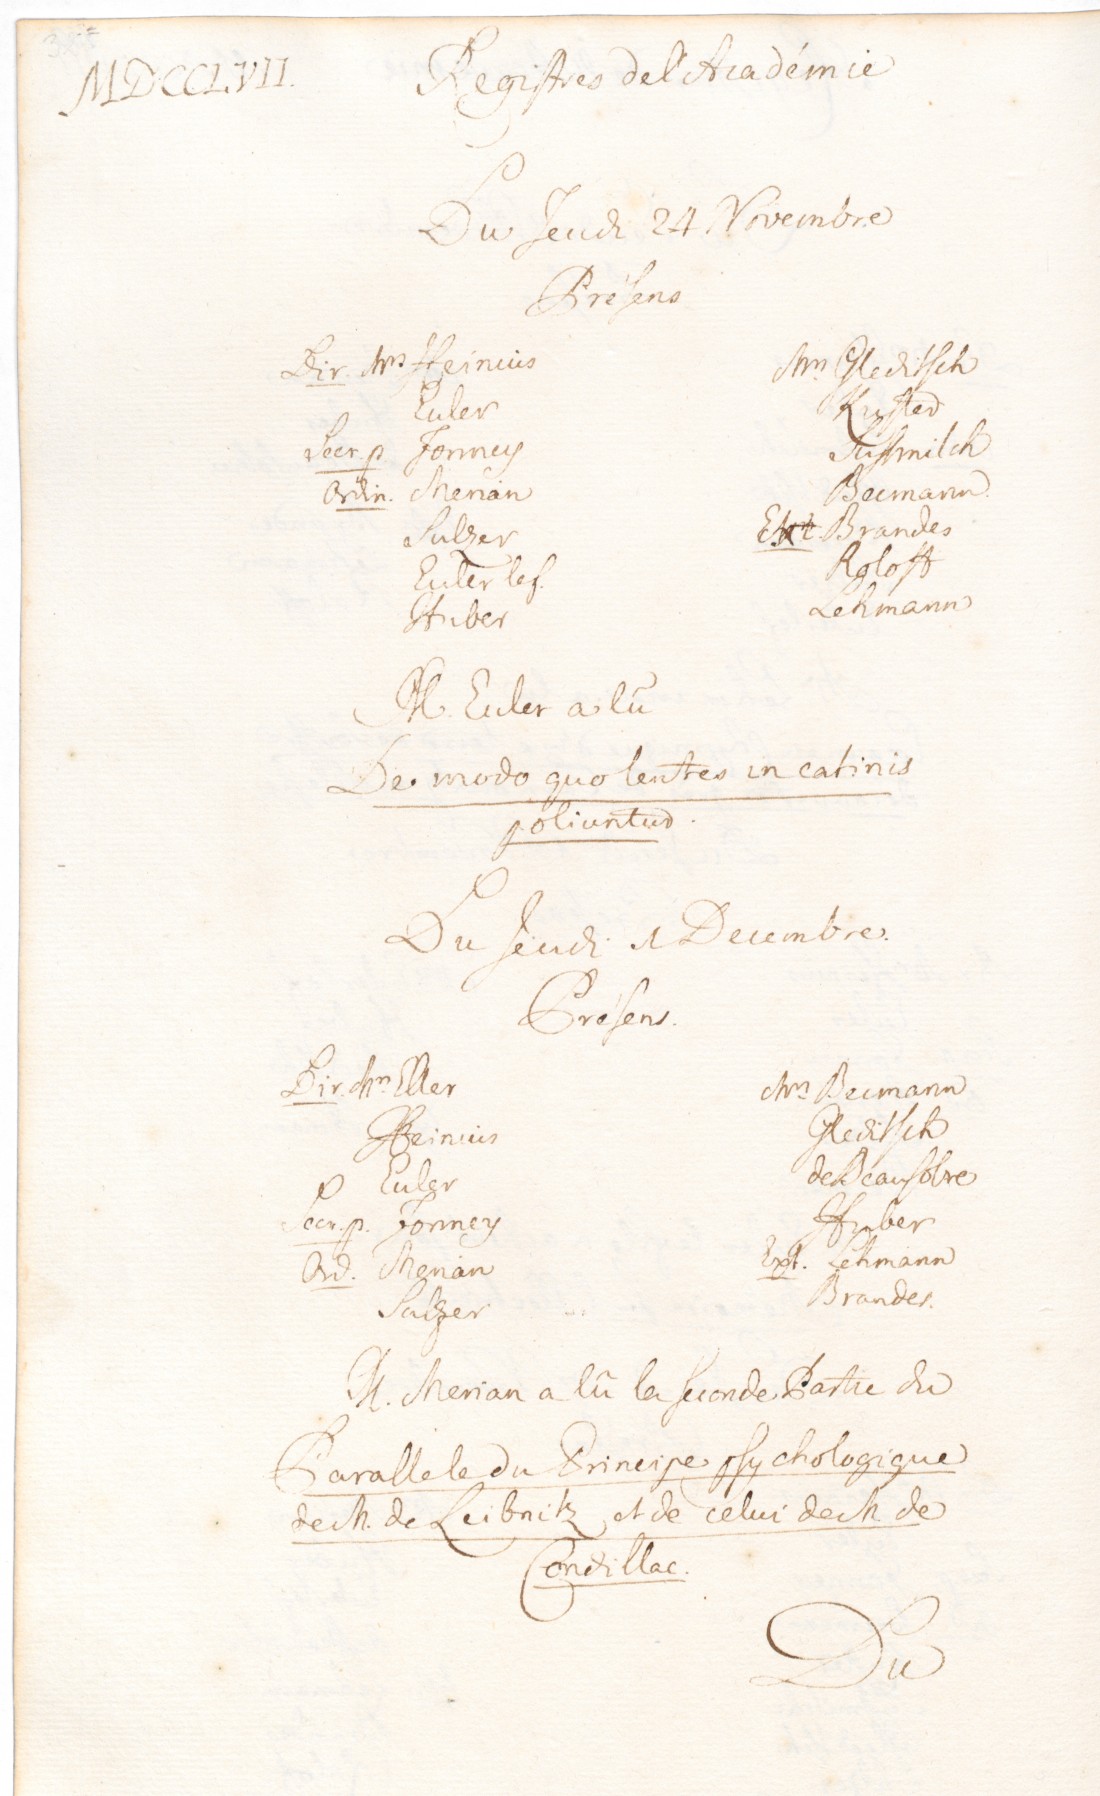 MDCCLVII. Registres de l'Académie
Du Jeudi 24 Novembre
Présens
Dir. Mrs Heinius
Euler
Secr. p Formey
Ordin. Merian
Sulzer
Euler le f.
Huber
Mrs Gleditsch
Kuster
Sussmilch
Becmann
Ext. Brandes
Roloff
Lehmann
M. Euler a lû
De modo quo lentes in catinis
poliuntur.
Du Jeudi 1 Decembre.
Présens.
Dir. Mrs Eller
Heinius
Euler
Secr. p. Formey
Ord. Merian
Sulzer
Mrs Becmann
Gleditsch
de Beausobre
Huber
Ext. Lehmann
Brandes.
M. Merian a lû la seconde Partie du
Parallele du Principe psychologique
de M. de Leibnitz, et de celui de M. de
Condillac.
Du